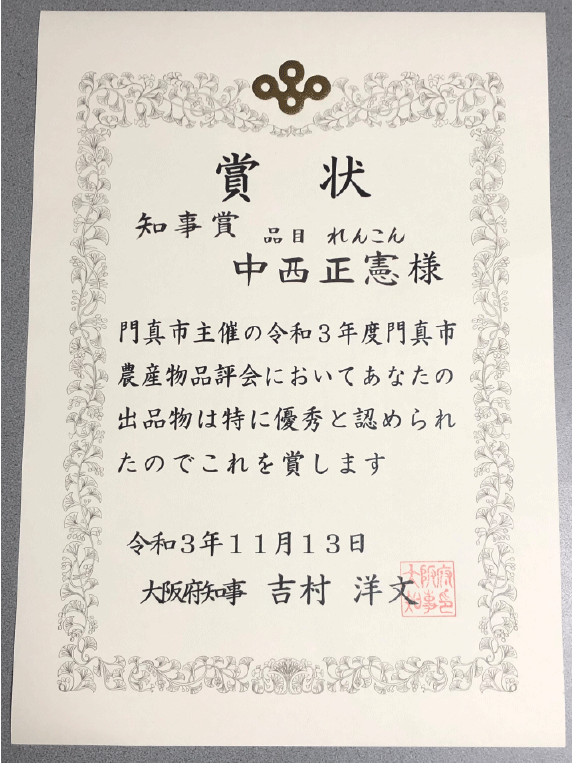 賞状
知事賞
品目 れんこん
中西正憲様
門真市主催の令和3年度門真市
農産物品評会においてあなたの
出品物は特に優秀と認められ
たのでこれを賞します
令和3年11月13日
大阪府知事 吉村 洋文
大阪府
知事印